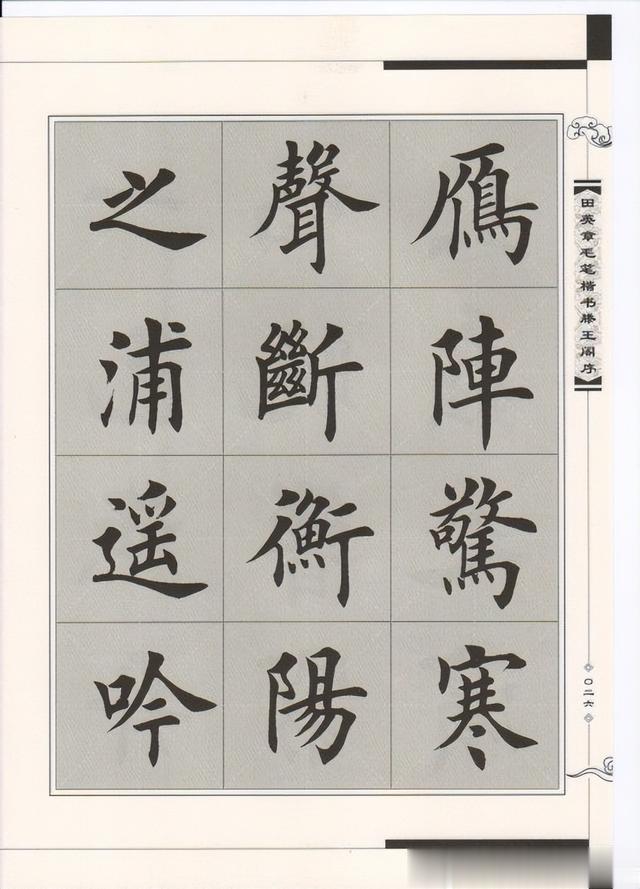 雁陣驚寒
聲斷衡陽
之浦遥吟
《田英章毛笔楷书滕王阁序》
〇二六